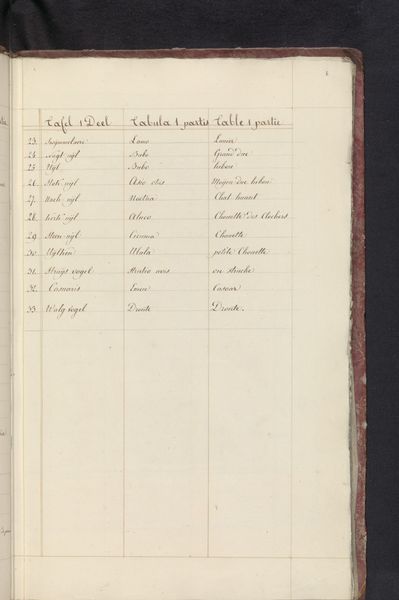 Tafel 1 Deel Tabula 1 partis Table 1 partie
23. Lanier
24. Nagt-uyl Bubo Grand duc
25. Uyl Bubo hibou
26. Asio otus Moyen duc hibou
27. Kerk-uyl Noctua Chat huant
28. Aluco Chouette des Clochers
29 Steen-uyl Cicuma Chouette
30. Uyltien Ulula petite Chouette
31. Struijs vogel Struthio avis
32. Casuaris Emeu Casoar
33. Walg vogel Dronte Dronte.